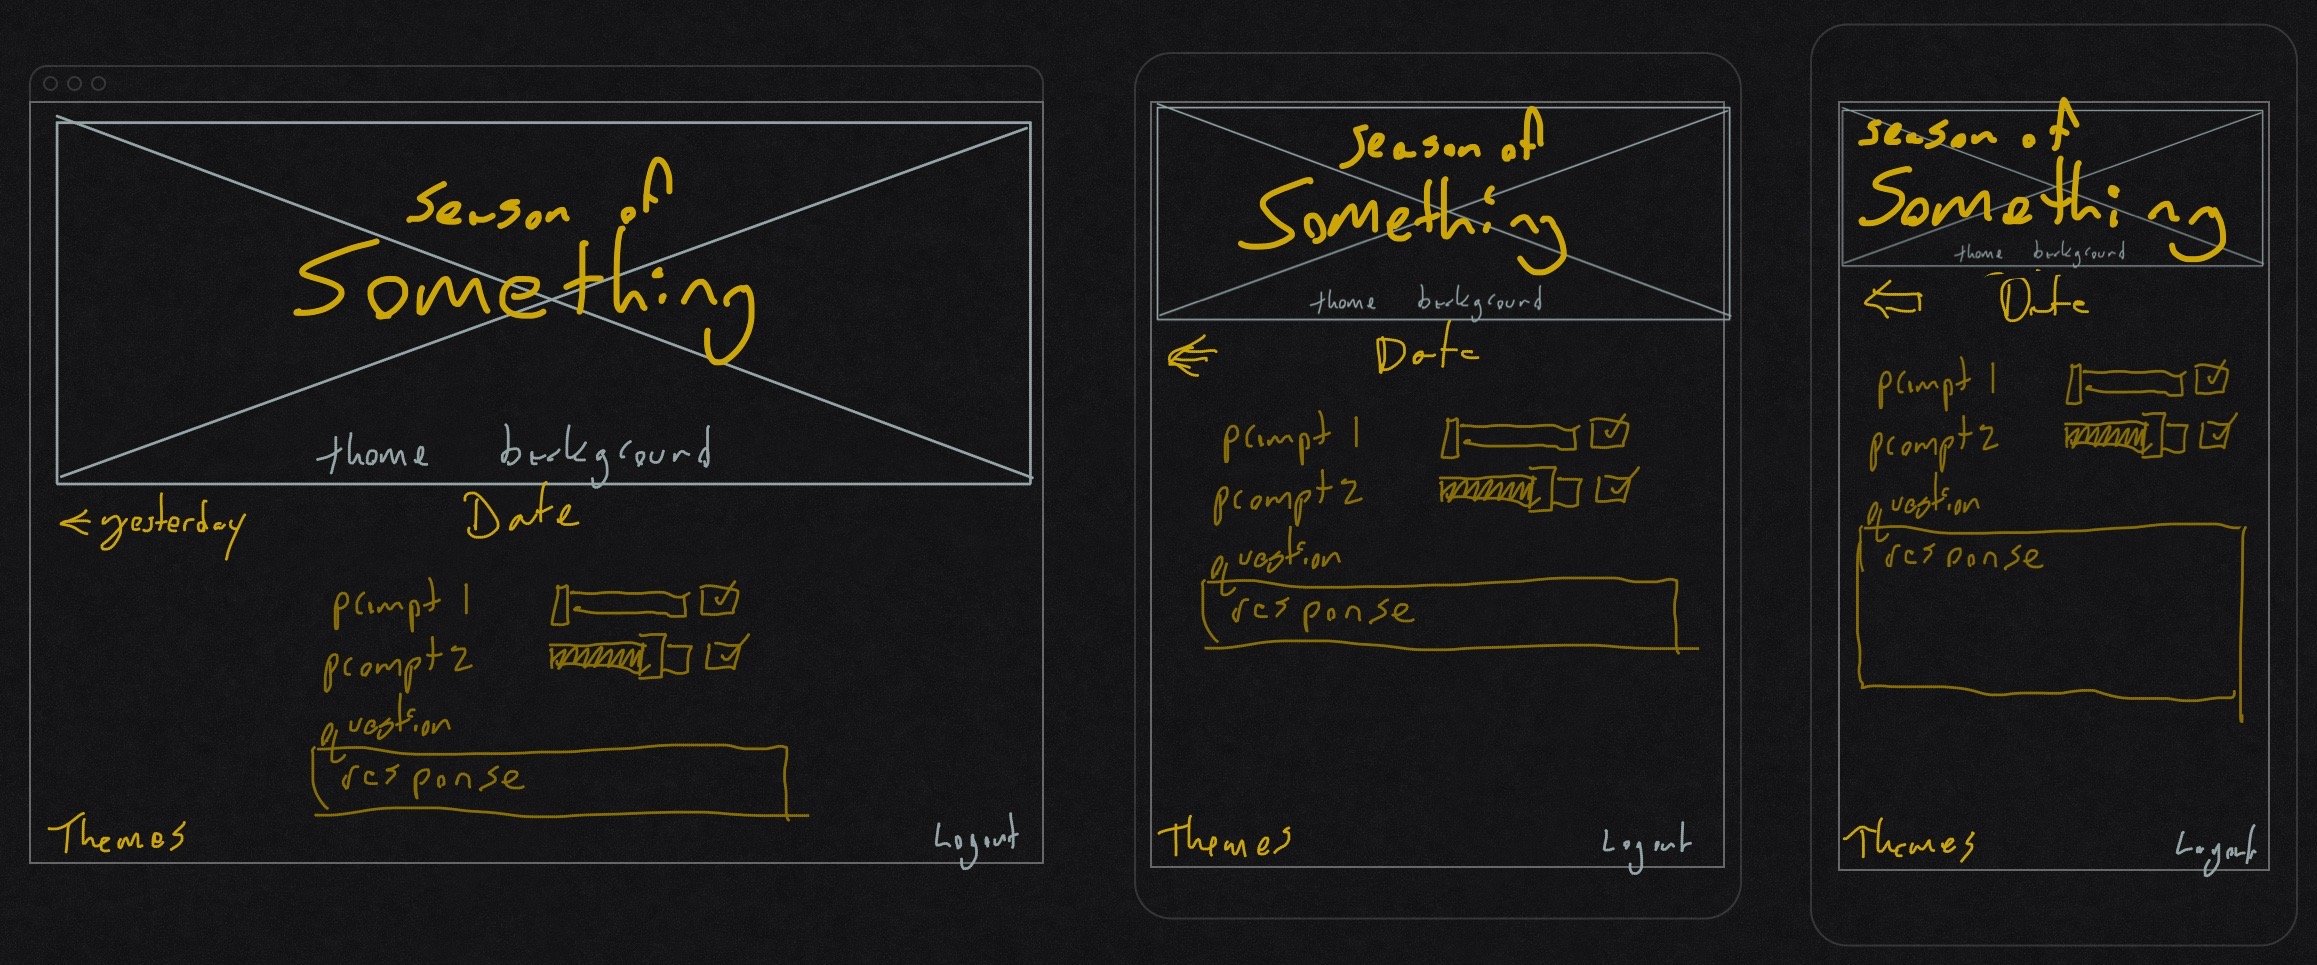 season of
Something
theme background
← yesterday Date
prompt 1
prompt 2
question
response
Themes Logout
season of
Something
theme background
← Date
prompt 1
prompt 2
question
response
Themes Logout
season of
Something
theme background
← Date
prompt 1
prompt 2
question
response
Themes Logout